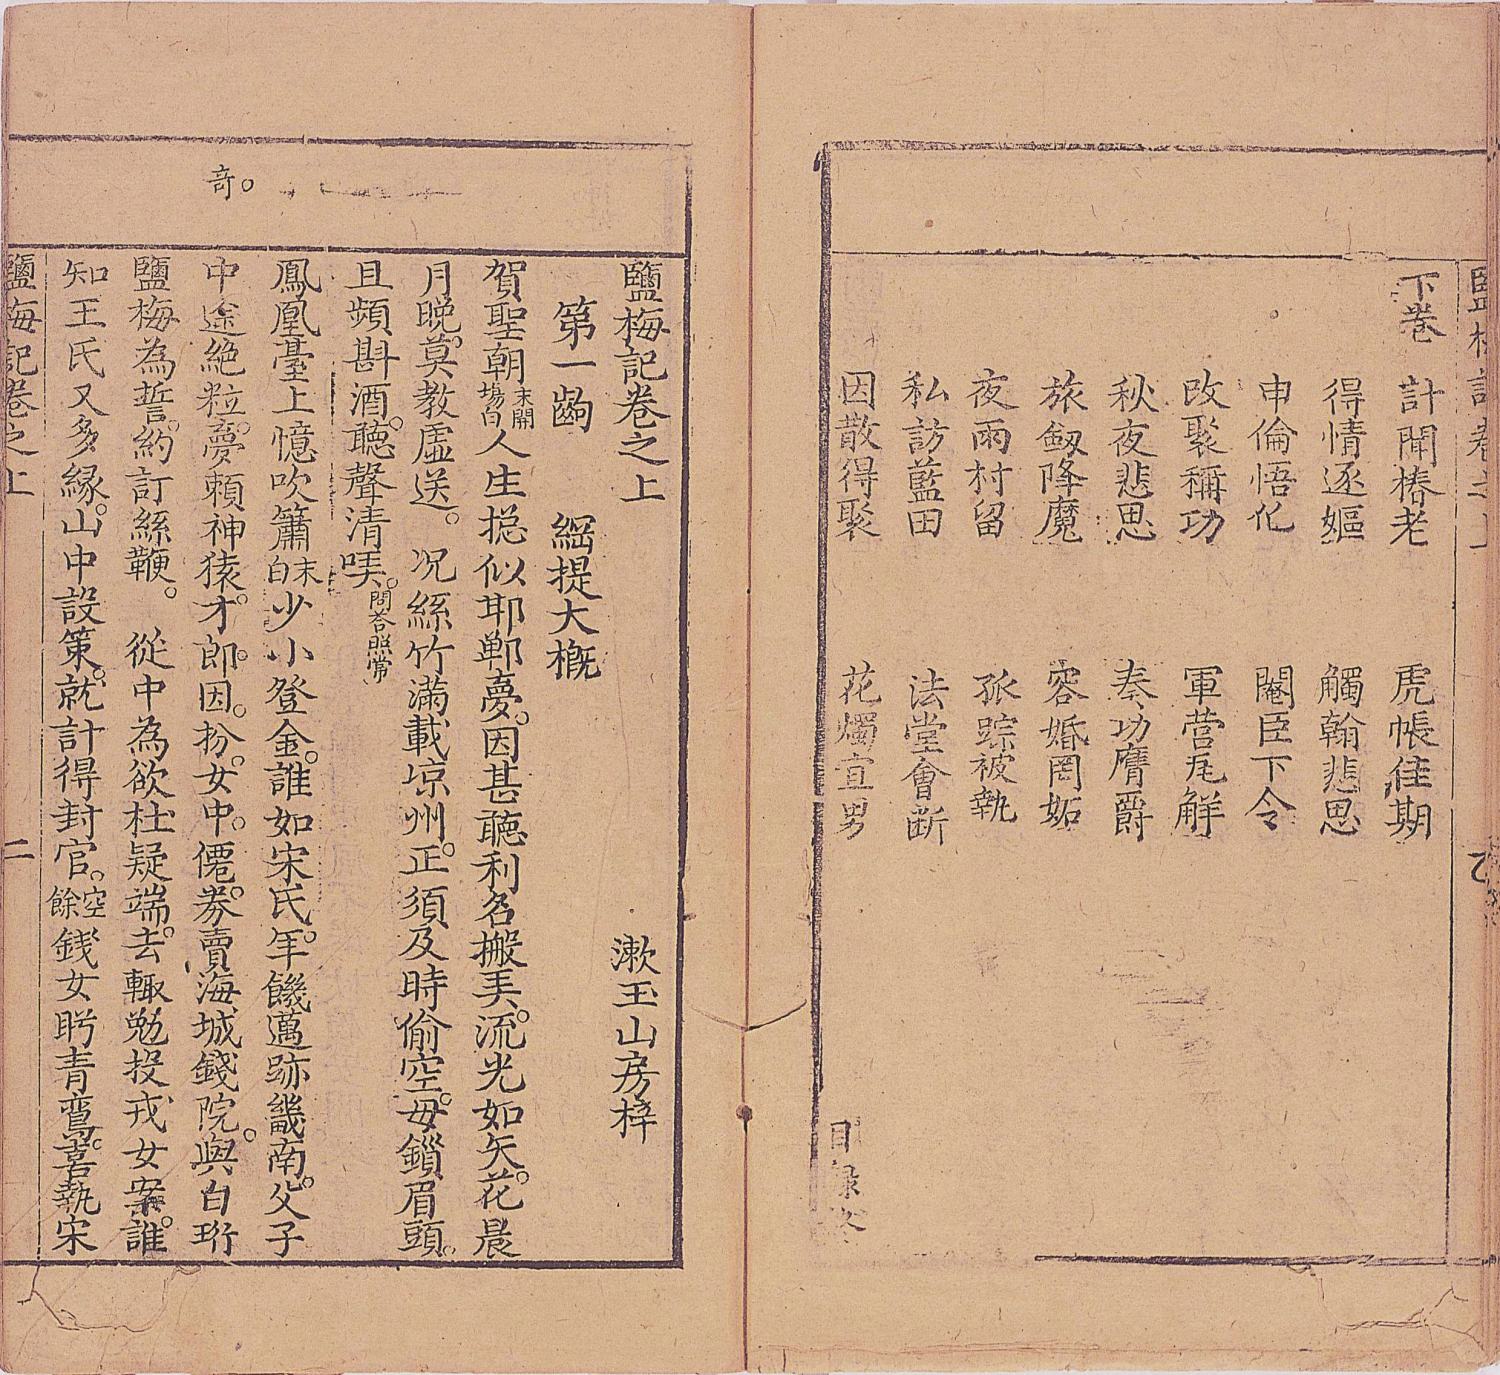 下卷
計聞椿老　虎帳佳期
得情逐嫗　觸翰悲思
申倫悟化　閹臣下令
改裝稱功　軍營尾觧
秋夜悲思　奏功膺爵
旅劔降魔　容婚罔妬
夜雨村留　孤踪被執
私訪藍田　法堂會断
因散得聚　花燭宜男
目録終
鹽梅記卷之上　漱玉山房梓
第一齣　綱提大概
賀聖朝末開場白人生摠似邯鄲夢。因甚聽利名搬弄。流光如矢。花晨
月晩。莫教虛送。　况絲竹滿載凉州。正須及時偷空。毋鎻眉頭。
且頻斟酒。聽聲清唭。問荅照常
鳳凰臺上憶吹簫末白少小登金。誰如宋氏。年饑邁跡畿南。父子
中途絶粒。夢頼神猿。才郎。因。扮。女中。僊。劵賣海城錢院。與白珩
鹽梅為誓。約訂絲鞭。　從中為欲杜疑端。去輙勉投戎女案。誰
知王氏又多縁。山中設策。就計得封官。空餘錢女盻青鸞。喜執宋
竒。
鹽梅記卷之上　二